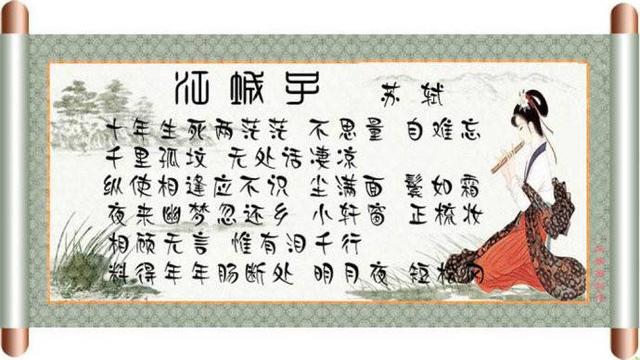 江城子 苏轼
十年生死两茫茫 不思量 自难忘
千里孤坟 无处话凄凉
纵使相逢应不识 尘满面 鬓如霜
夜来幽梦忽还乡 小轩窗 正梳妆
相顾无言 惟有泪千行
料得年年肠断处 明月夜 短松冈